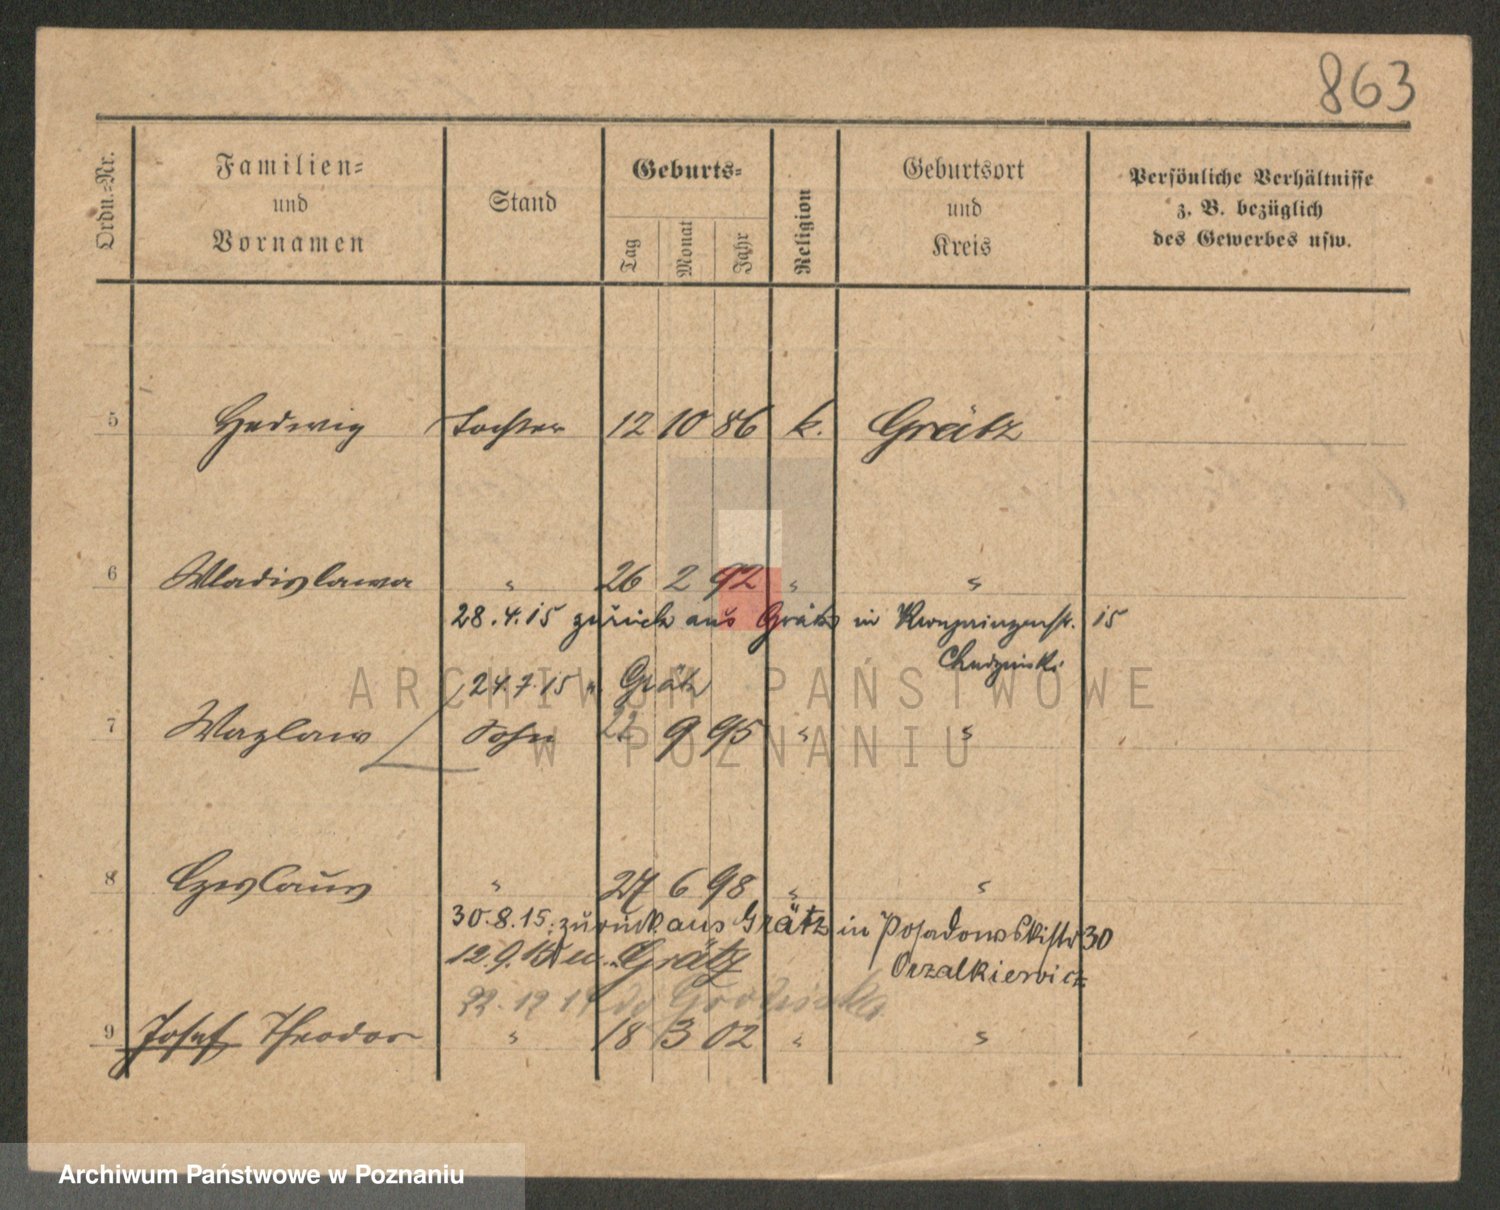 863
Ordn.=Nr.
Familien=
und
Vornamen
Stand
Geburts=
Tag
Monat
Jahr
Religion
Geburtsort
und
Kreis
Persönliche Verhältnisse
z. B. bezüglich
des Gewerbes usw.
5 Hedwig Tochter 12 10 86 k. Grätz
6 Wladislawa " 26 2 92 " "
28.4.15 zurück aus Grätz in Kronprinzenstr. 15
Chudzinski
24.7.15 n. Grätz
7 Wazlaw Sohn 22 9 95 " "
8 Czeslaus " 27 6 98 " "
30.8.15. zurück aus Grätz in Posadowskistr 30
Orzalkiewicz
12.9.15 n. Grätz
22.12.17
9 Josef Theodor " 18 3 02 " "
ARCHIWUM PAŃSTWOWE
W POZNANIU
Archiwum Państwowe w Poznaniu